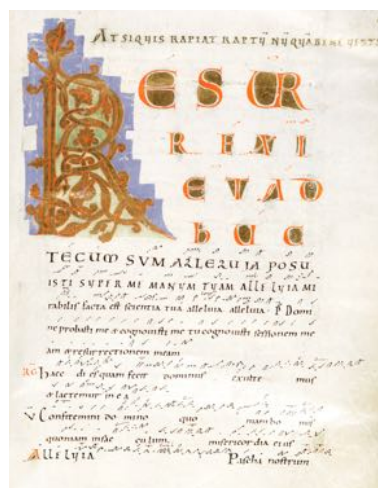 AT SIQUIS RAPIAT RAPTŪ NŪQUA BENE VESTI
RESUR
REXI
ET AD
HUC
TECUM SUM ALLELUIA POSU
ISTI SUPER ME MANUM TUAM ALLELUIA MI
rabilis facta est scientia tua alleluia alleluia. P Domi
ne probasti me & cognovisti me tu cognovisti sessionem me
am & resurrectionem meam
RG haec di es quam fecit dominus exulte mus
& laetemur in ea
V Confitemini do mino quo niam bo nus
quoniam in sae cu lum misericor dia eius
Alle luia Pascha nostrum